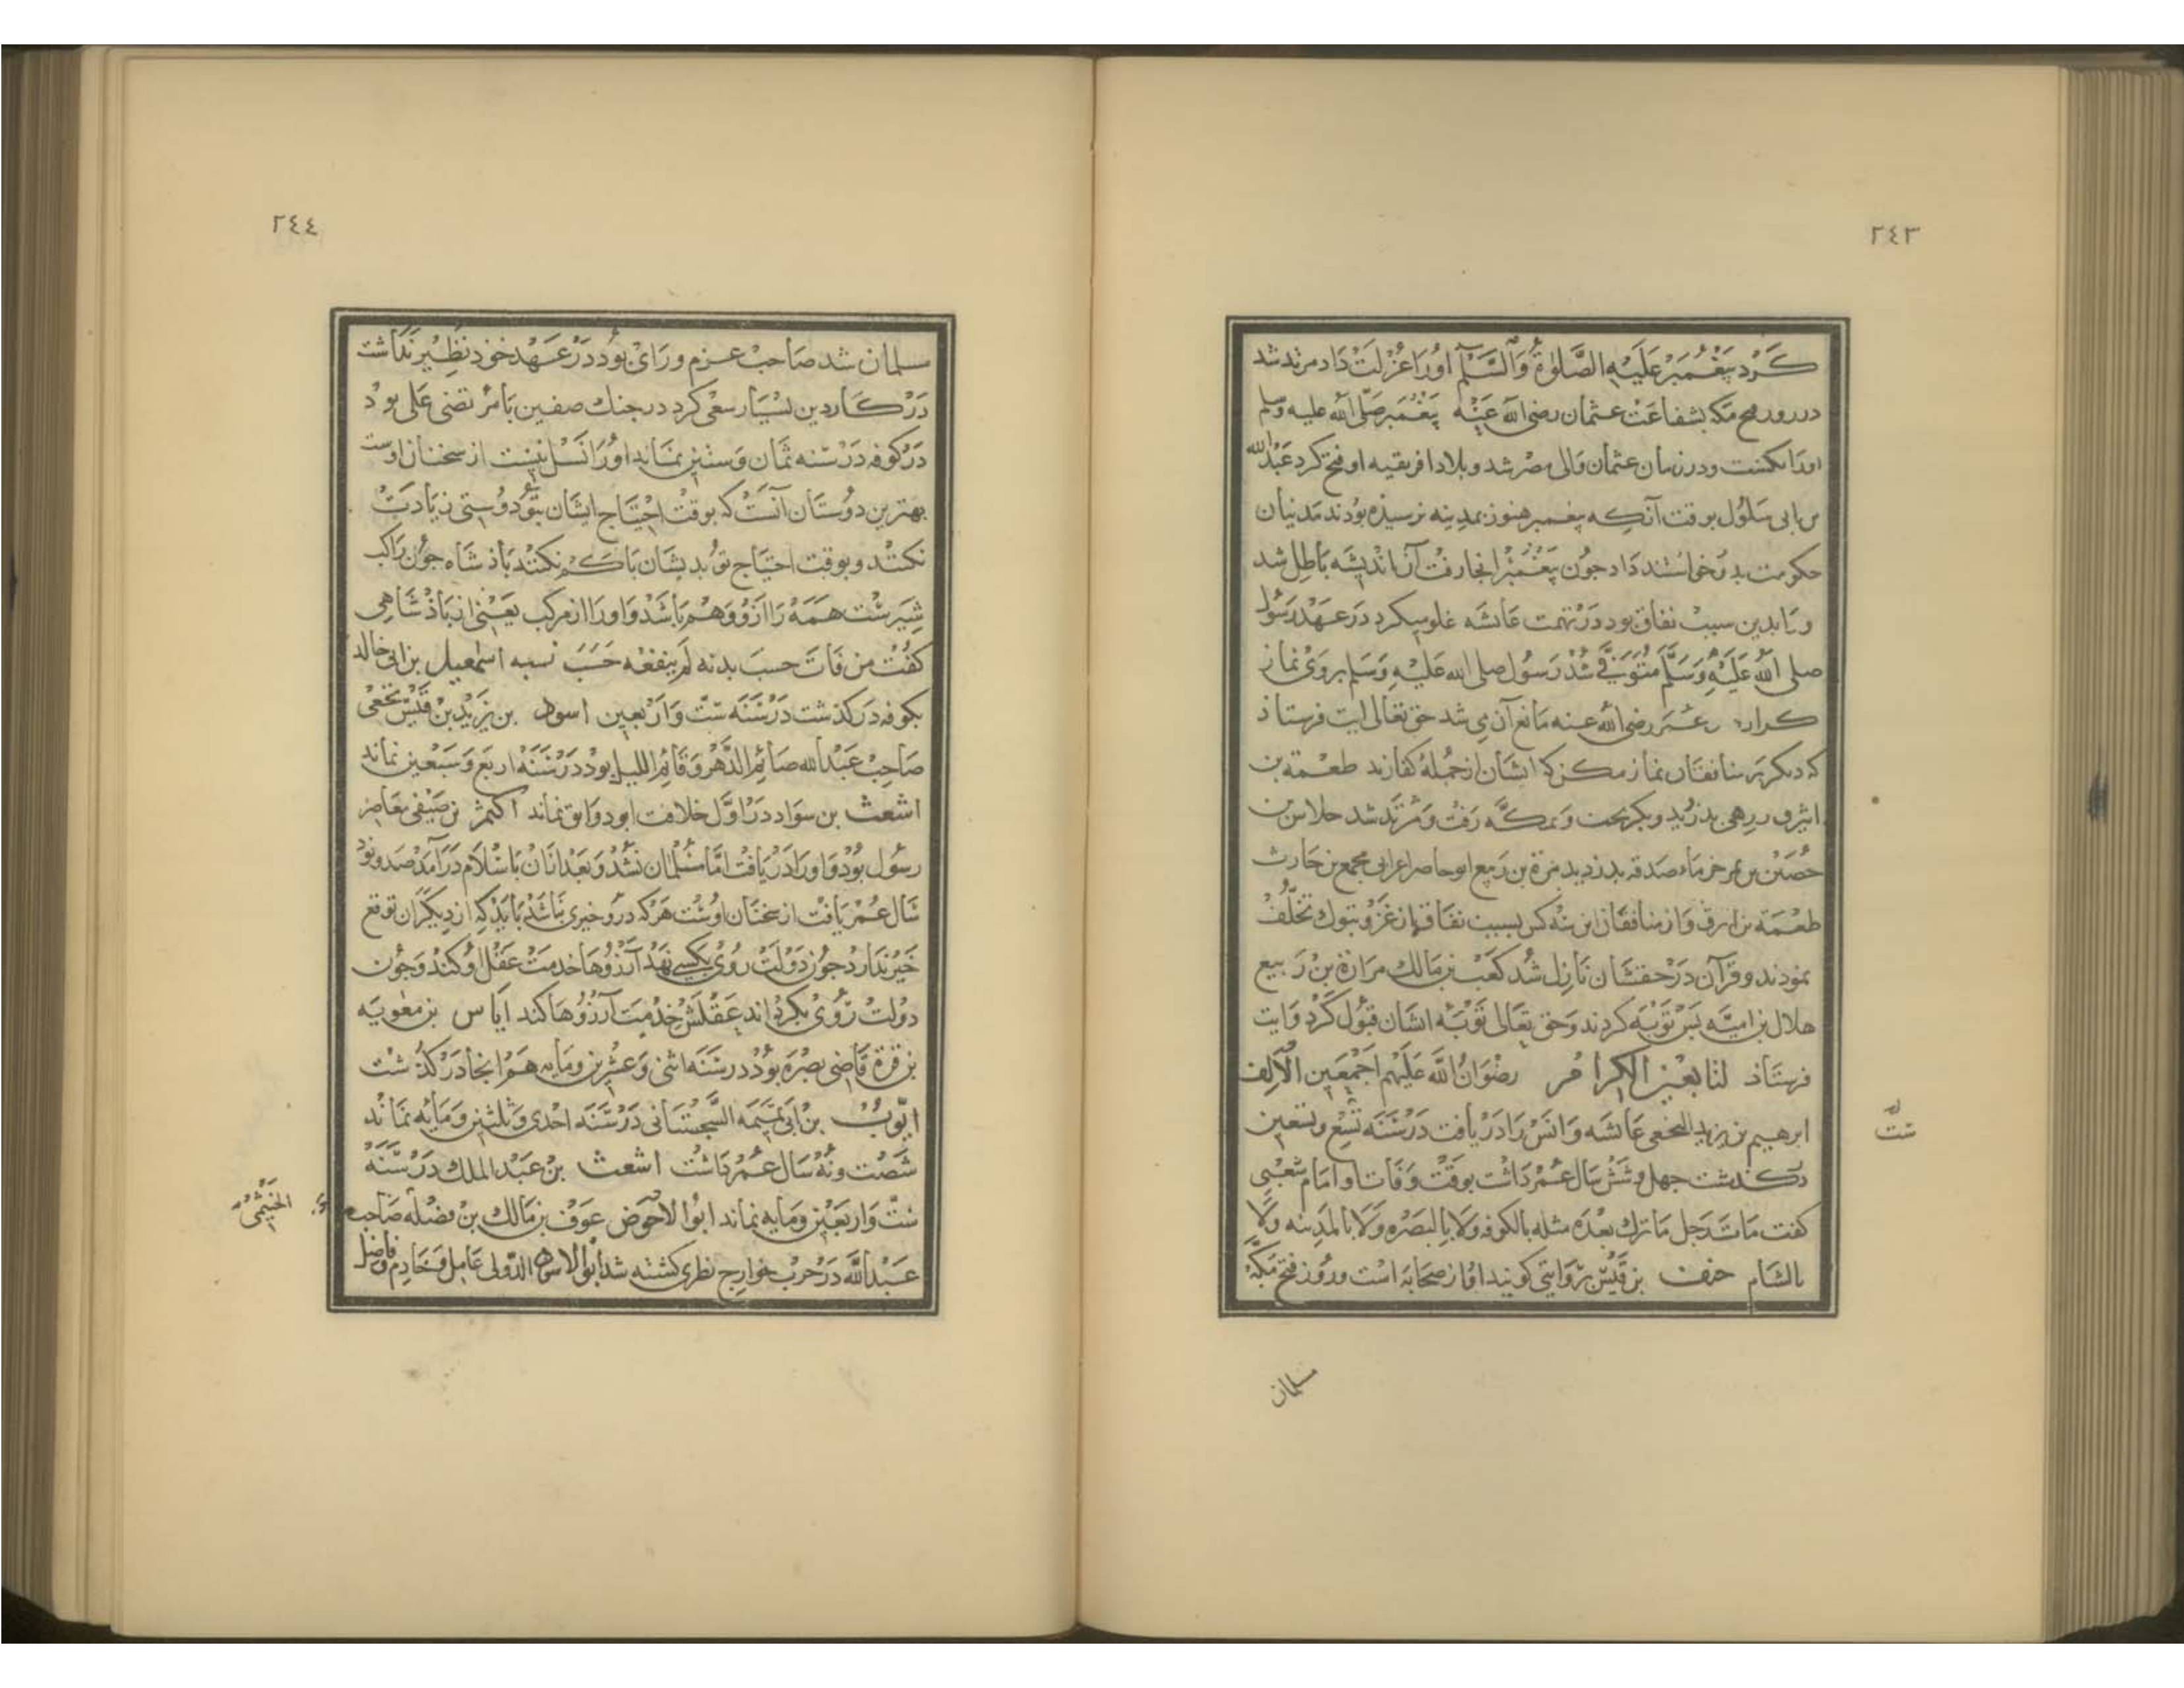 ٢٤٣
كرد پیغمبر علیه الصلوة والسلم اورا عزلت داد مرتد شد
در روز فتح مکه بشفاعت عثمان رضی الله عنه پیغمبر صلی الله علیه وسلم
اورا نکشت ودر زمان عثمان والی مصر شد وبلاد افریقیه او فتح کرد عبدالله
بن ابی سلول بوقت آنکه پیغمبر هنوز بمدینه نرسیده بودند مدنیان
حکومت بدو خواستند داد جون پیغمبر انجا رفت آن اندیشه باطل شد
وبدین سبب نفاق بود در تهمت عایشه غلو میکرد در عهد رسول
صلی الله علیه وسلم متوفی شد رسول صلی الله علیه وسلم بروی نماز
کرارد عمر رضی الله عنه مانع آن می شد حق تعالی ایت فرستاذ
که دیکر بر منافقان نماز مکن که ایشان از جمله کفارند طعمة بن
ابیرق زرهی بدزدید وبکریخت وبمکه رفت ومرتد شد حلاس بن
حصین بن خرماء صدقه بدزدید مرة بن ربیع ابوحاصر اعرابی مجمع بن حارث
طعمة بن ارق واز منافقان این سه کس بسبب نفاق از غزو تبوك تخلف
نمودند وقرآن در حقشان نازل شد کعب بن مالك مرارة بن ربیع
هلال بن امیه پس توبه کردند وحق تعالی توبه ایشان قبول کرد وایت
فرستاذ لتابعین الکرام رضوان الله علیهم اجمعین الالف
ابرهیم بن یزید النخعی عایشه وانس را دریافت در سنه تسع وتسعین
درکذشت جهل وشش سال عمر داشت بوقت وفات او امام شعبی
کفت مات رجل ما ترك بعده مثله بالکوفه ولا بالبصره ولا بالمدینه ولا
بالشام حنف بن قیس بروایتی کویند او از صحابه است وروز فتح مکه
ست
مسلمان
٢٤٤
سلمان شد صاحب عزم ورای بود در عهد خود نظیر نداشت
در کار دین بسیار سعی کرد در جنك صفین با مرتضی علی بود
در کوفه در سنه ثمان وستین نماند اورا نسل نیست از سخنان اوست
بهترین دوستان آنست که بوقت احتیاج ایشان بتو دوستی زیادت
نکنند وبوقت احتیاج تو بدیشان با کم نکنند باذشاه جون راکب
شیرست همه را ازو وهم باشد واورا از مرکب یعنی از باذشاهی
کفت من فات حسب بدنه لم ینفعه حسب نسبه اسمعیل بن ابی خالد
بکوفه درکذشت در سنه ست واربعین اسود بن یزید بن قیس نخعی
صاحب عبدالله صائم الدهر وقائم اللیل بود در سنه اربع وسبعین نماند
اشعث بن سواد در اول خلافت ابو دوانق نماند اکثم بن صیفی معاصر
رسول بود واورا دریافت اما مسلمان نشد وبعد ازان باسلام درآمد صد ونود
سال عمر یافت از سخنان اوست هرکه درو خیری نباشد باید که از دیکران توقع
خیر ندارد جون دولت روی بکسی نهد آرزوها خدمت عقل او کنند وجون
دولت روی بکرداند عقلش خدمت آرزوها کند ایاس بن معویه
بن قرة قاضی بصره بود در سنه اثنی وعشرین ومایه هم انجا درکذشت
ایوب بن ابی تمیمه السجستانی در سنه احدی وثلثین ومایه نماند
شصت ونه سال عمر داشت اشعث بن عبد الملك در سنه
ست واربعین ومایه نماند ابو الاحوص عوف بن مالك بن نضله صاحب
عبدالله در حرب خوارج نظری کشته شد ابو الاسود الدولی عامل وخادم وفاضل